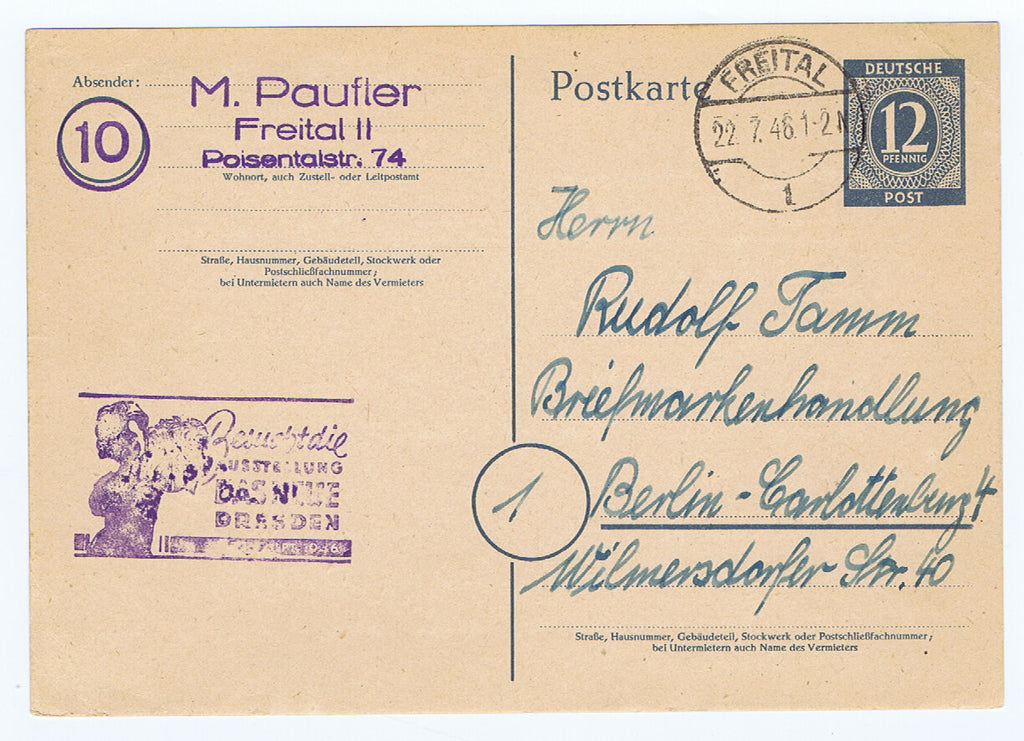 Absender:
M. Paufler
Freital II
Poisentalstr. 74
10
Wohnort, auch Zustell- oder Leitpostamt
Straße, Hausnummer, Gebäudeteil, Stockwerk oder
Postschließfachnummer;
bei Untermietern auch Name des Vermieters
Besucht die
AUSSTELLUNG
DAS NEUE
DRESDEN
1946
Postkarte
FREITAL
22. 7. 46. 1-2 N
1
DEUTSCHE
12
PFENNIG
POST
Herrn
Rudolf Tamm
Briefmarkenhandlung
1
Berlin-Carlottenburg 4
Wilmersdorfer Str. 40
Straße, Hausnummer, Gebäudeteil, Stockwerk oder Postschließfachnummer;
bei Untermietern auch Name des Vermieters